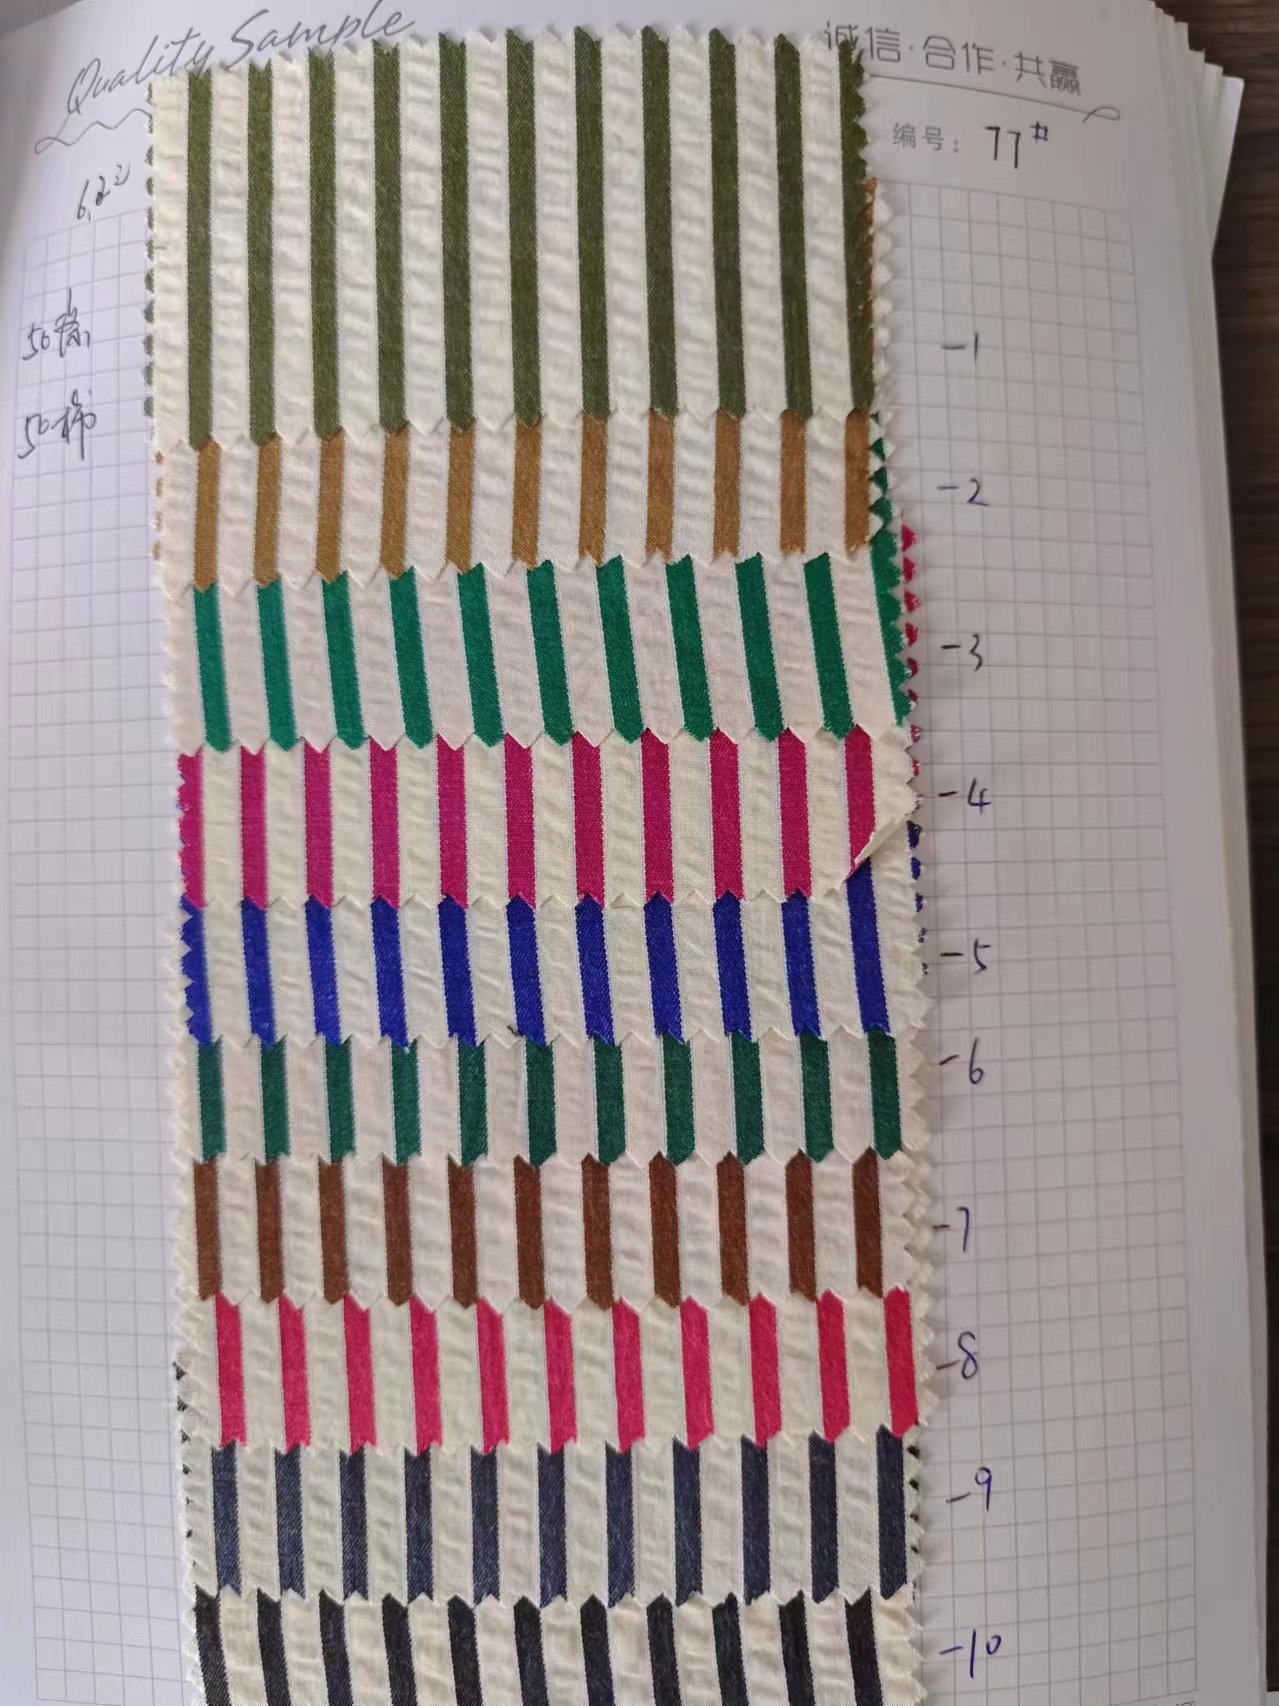 Quality Sample
诚信·合作·共赢
编号: 77#
50棉
-1
-2
-3
-4
-5
-6
-7
-8
-9
-10